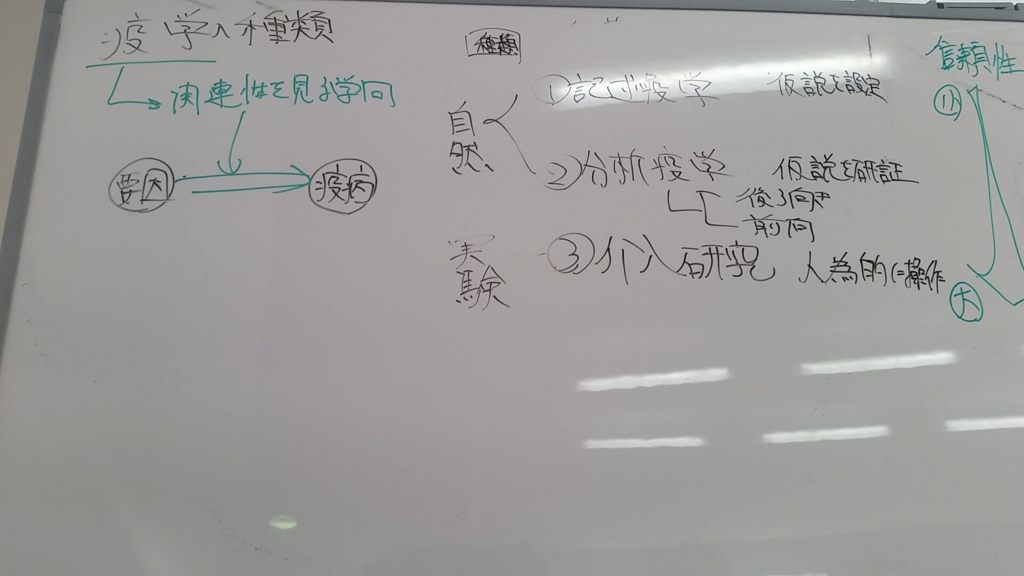 疫学の種類
関連性を見る学問
要因
疫病
種類
自然
①記述疫学 仮説を設定
②分析疫学 仮説を研証
後ろ向き
前向
実験
③介入研究 人為的に操作
信頼性
小
大